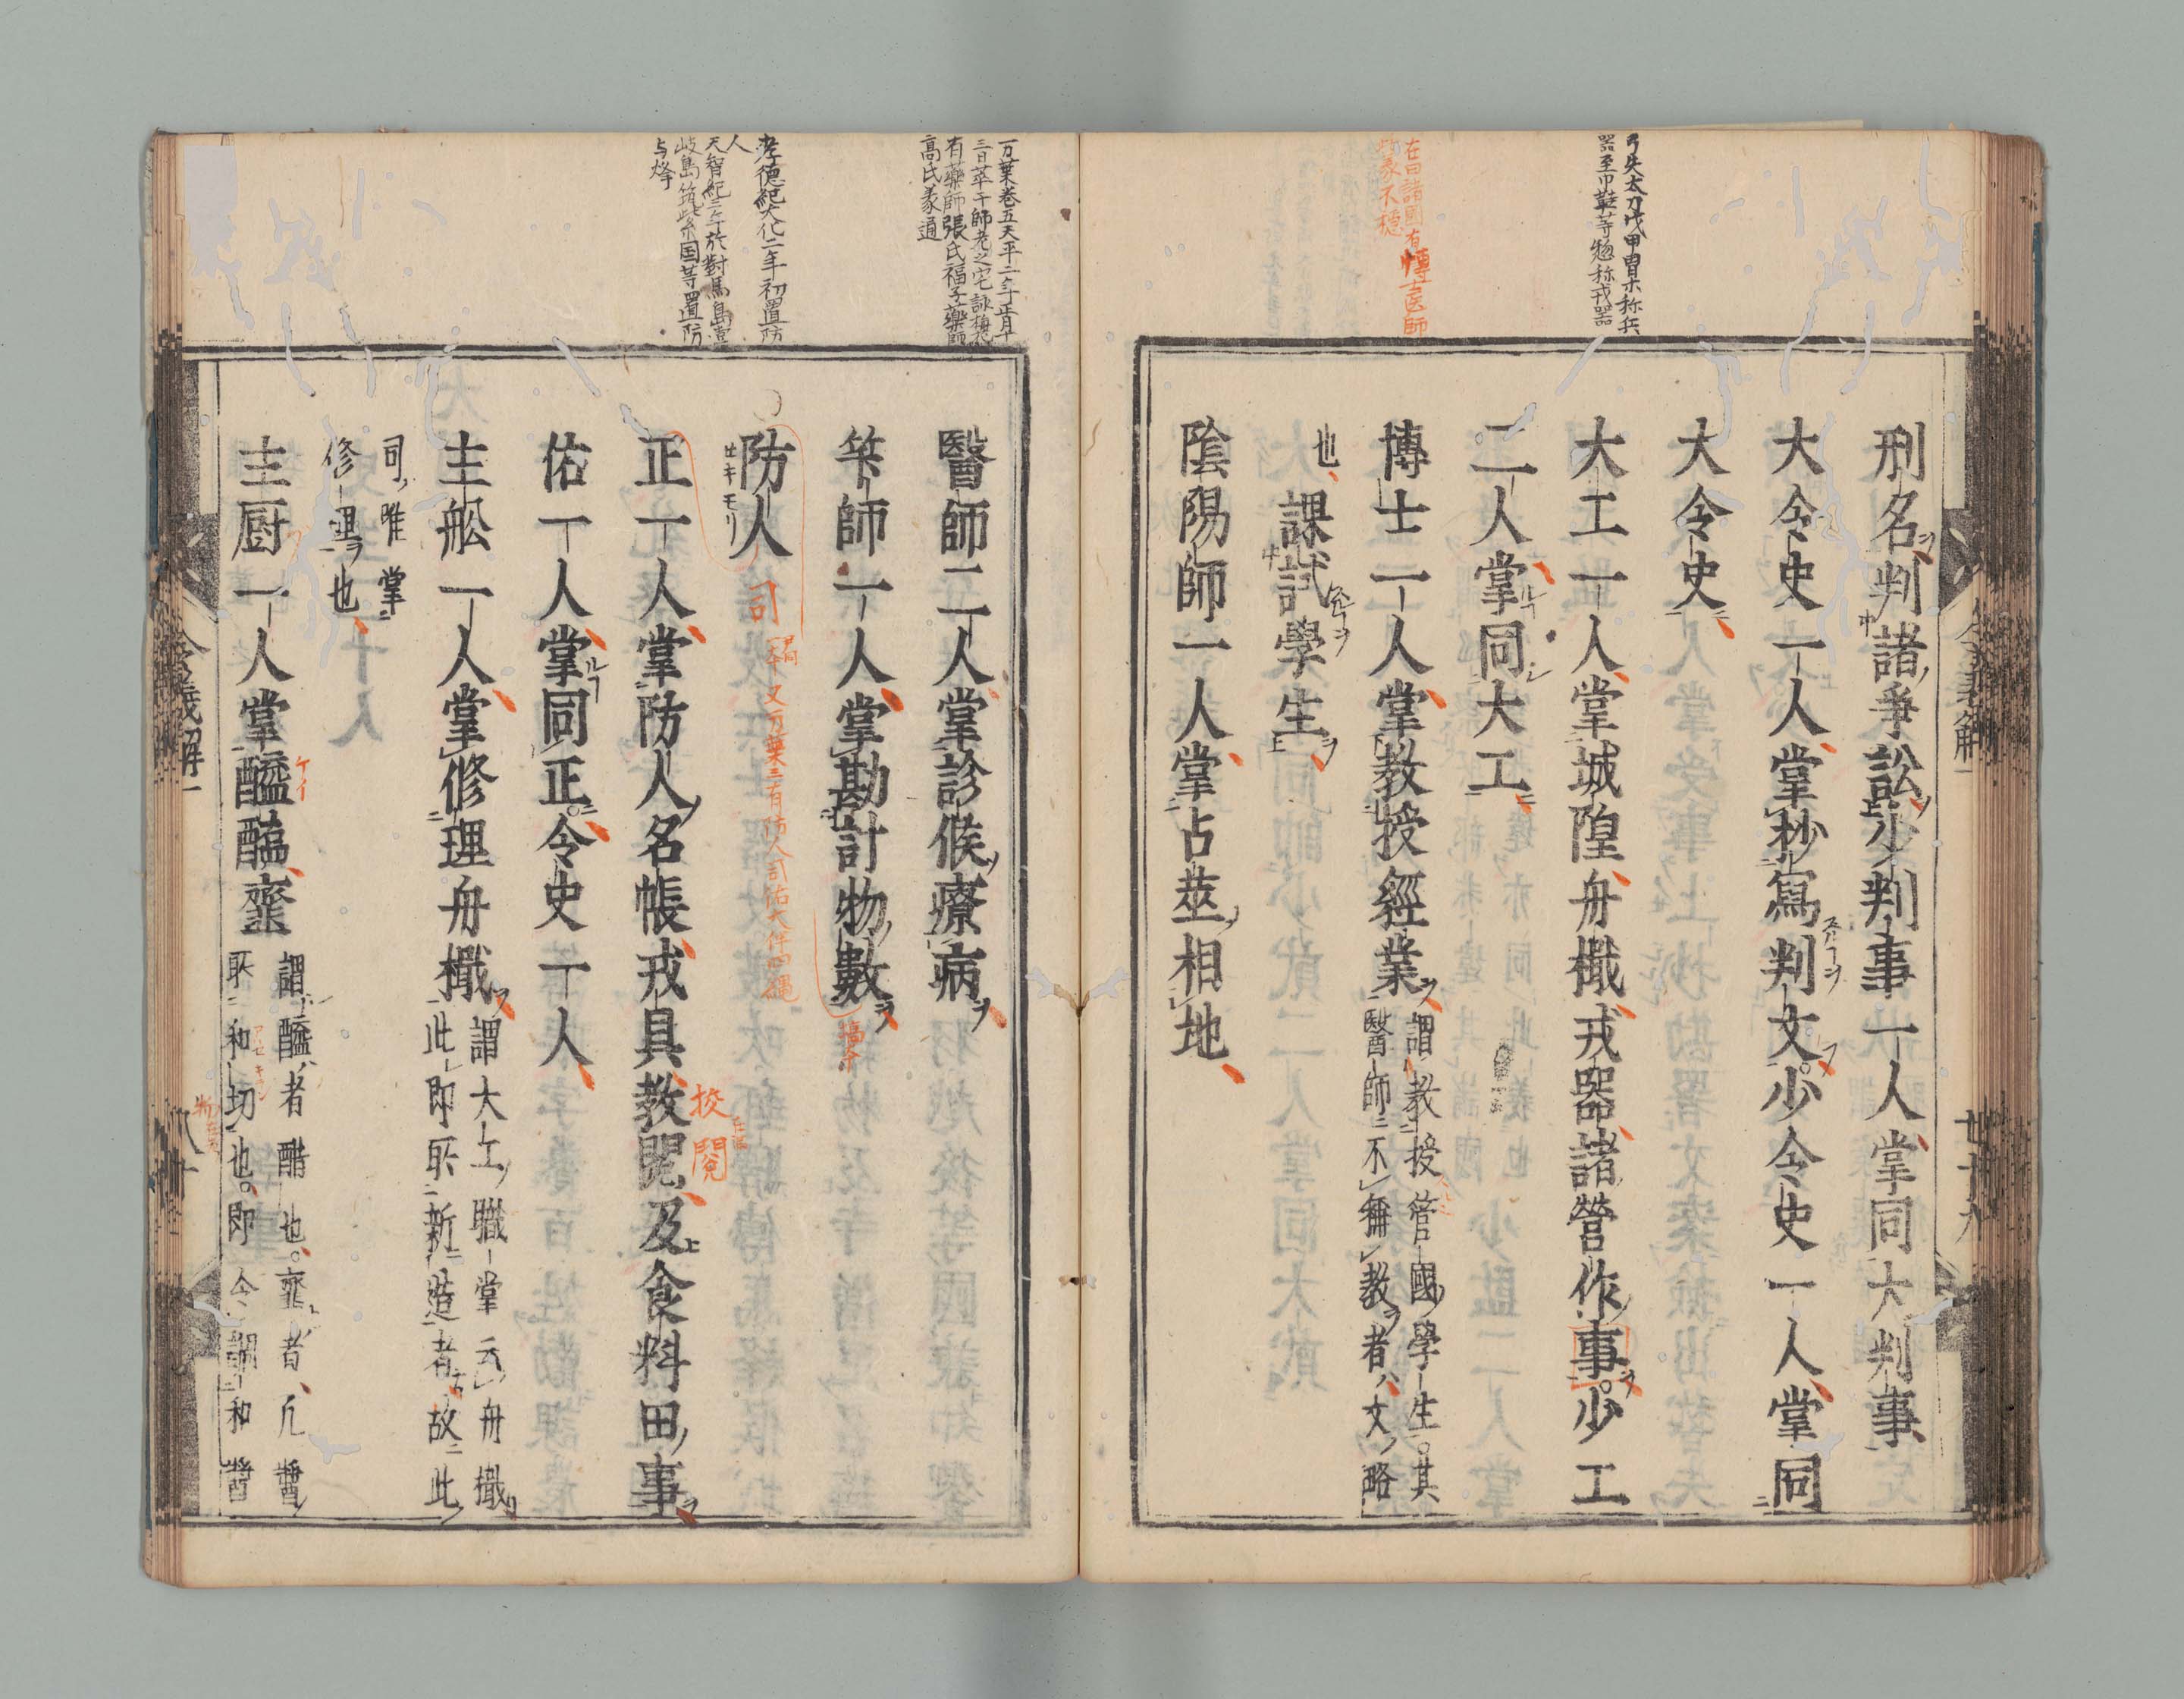 弓矢太刀戊甲冑只称兵
器至巾鞋等惣称戎器
在曰諸國有博士医師
刑名判諸爭訟少判事一人掌同大判事
大令史一人掌抄寫判文少令史一人掌同
大令史
大工一人掌城隍舟檝戎器諸營作事少工
二人掌同大工
博士一人掌教授經業謂教授管國學生其
醫師不稱教者文略
也課試學生
陰陽師一人掌占莁相地
令義解一
廿九
万葉巻五天平二年正月十
三日萃于師老之宅詠梅花
有藥師張氏福子藥師
高氏義通
孝德紀大化二年初置防
人
天智紀三年於對馬島壹
岐島筑紫国等置防
与烽
醫師二人掌診候療病
筭師一人掌勘計物數
防人
サキモリ
司
又万葉三有防人司佑大伴四縄
正一人掌防人名帳戎具教閲及食料田事
校閲
佑一人掌同正令史一人
主舩一人掌修理舟檝謂大工職掌云舟檝
此即取新造者故此
司唯掌
修理也
主厨一人掌醯醢虀
ケイ
謂醯者醋也虀者凡醬
取和切也即今謂和醬
令義解一